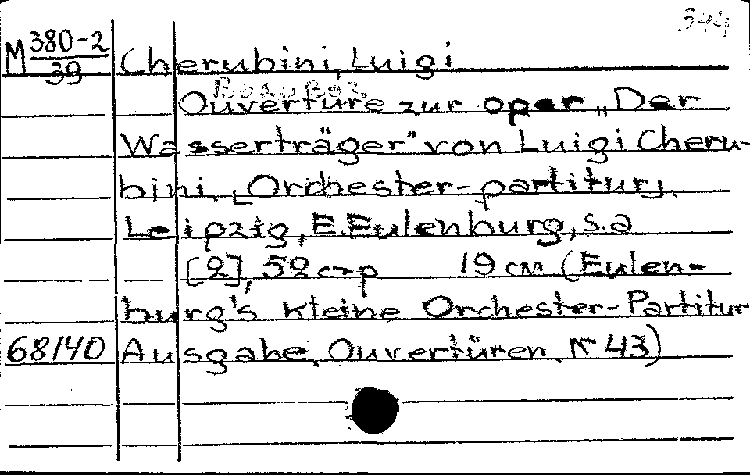 344
M 380-2/39 Cherubini, Luigi
Ouverture zur oper „Der
Wasserträger" von Luigi Cheru-
bini. [Orchester-partitur].
Leipzig, E. Eulenburg, s.a
[2], 52 стр 19 см (Eulen-
burg's kleine Orchester-Partitur
68140 Ausgabe, Ouvertüren, № 43)